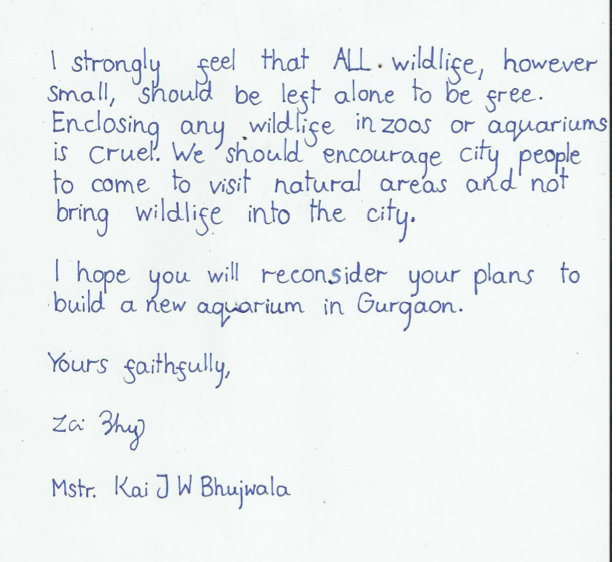 I strongly feel that ALL wildlife, however
small, should be left alone to be free.
Enclosing any wildlife in zoos or aquariums
is cruel. We should encourage city people
to come to visit natural areas and not
bring wildlife into the city.
I hope you will reconsider your plans to
build a new aquarium in Gurgaon.
Yours faithfully,
Mstr. Kai J W Bhujwala